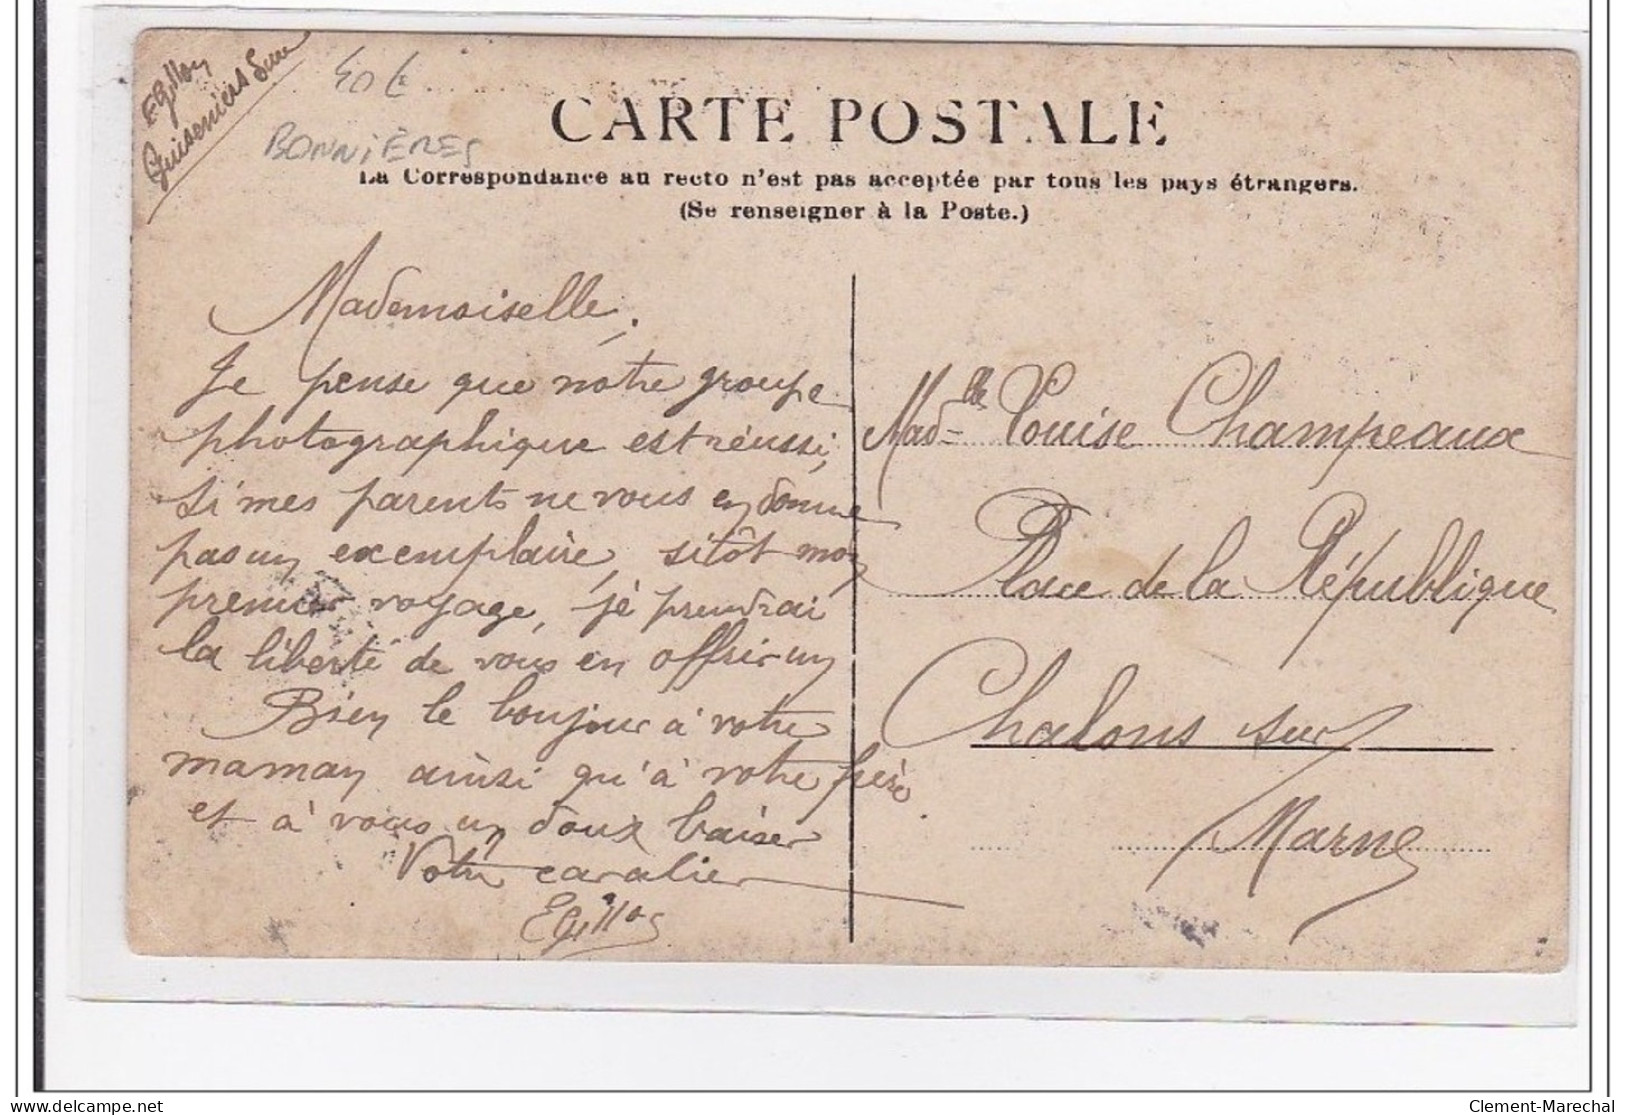 EGillon
Guiseniers Eure
40 €
BONNIÈRES
CARTE POSTALE
La Correspondance au recto n'est pas acceptée par tous les pays étrangers.
(Se renseigner à la Poste.)
Mademoiselle,
Je pense que notre groupe
photographique est réussi,
si mes parents ne vous en donne
pas un exemplaire, sitôt mon
premier voyage, je prendrai
la liberté de vous en offrir un
Bien le bonjour à votre
maman ainsi qu'à votre père
et à vous un doux baiser
Votre cavalier
EGillon
Madlle Louise Champeaux
Place de la République
Chalons sur
Marne
delcampe.net
Clement-Marechal